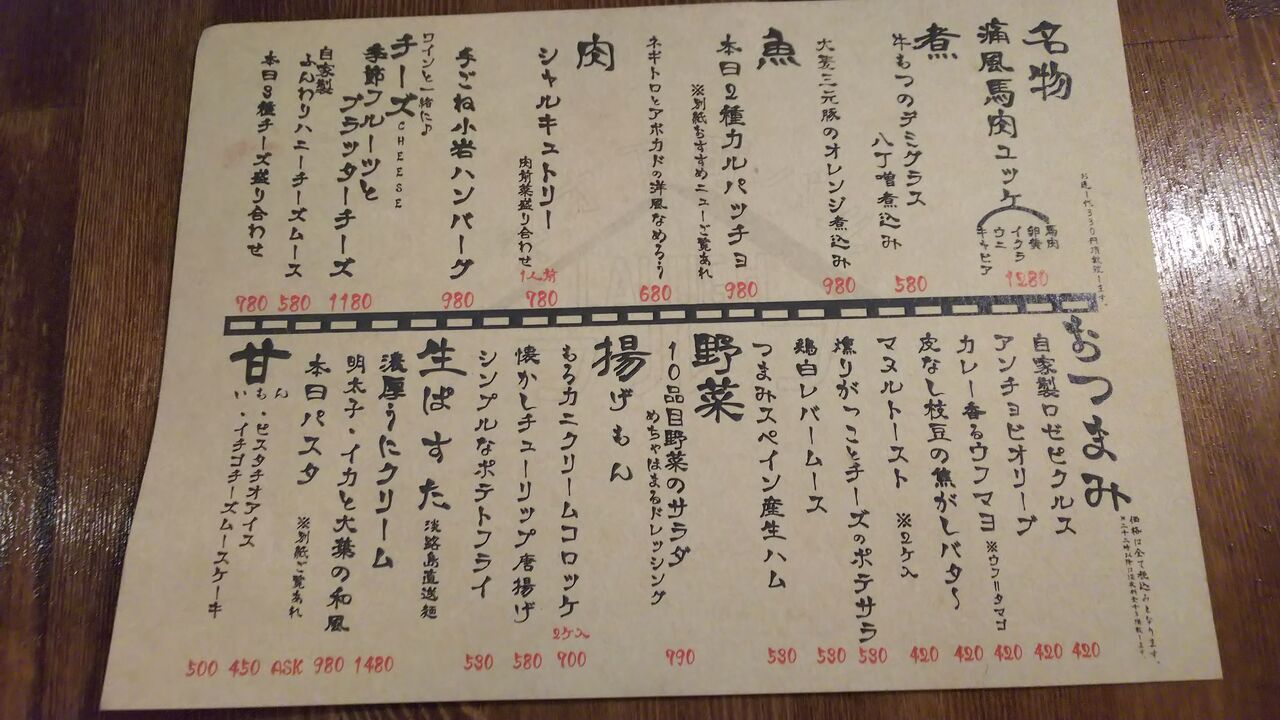 名物
痛風馬肉ユッケ
馬肉
卵黄
イクラ
ウニ
キャビア
1280
お通し代330円頂戴致します。
煮
牛もつのデミグラス
八丁噌煮込み
580
大麦三元豚のオレンジ煮込み
980
魚
本日2種カルパッチョ
※別紙おすすめニューご覧あれ
980
ネギトロとアボカドの洋風なめろう
680
肉
シャルキュトリー
肉前菜盛り合わせ
1人前
780
手ごね小岩ハンバーグ
980
ワインと一緒に♪
チーズ
CHEESE
季節フルーツと
ブラッターチーズ
1180
自家製
ふんわりハニーチーズムース
580
本日3種チーズ盛り合わせ
780
おつまみ
価格は全て税込みとなります。
自家製ロゼピクルス
420
アンチョビオリーブ
420
カレー香るウフマヨ
※ウフ=タマゴ
420
皮なし枝豆の焦がしバタ〜
420
マヌルトースト
※2ケ入
420
燻りがっことチーズのポテサラ
530
鶏白レバームース
530
つまみスペイン産生ハム
530
野菜
10品目野菜のサラダ
めちゃはまるドレッシング
990
揚げもん
もろカニクリームコロッケ
2ケ入
700
懐かしチューリップ唐揚げ
580
シンプルなポテトフライ
530
生ぱすた
淡路島直送麺
濃厚うにクリーム
1480
明太子・イカと大葉の和風
980
本日パスタ
※別紙ご覧あれ
ASK
甘いもん
・ピスタチオアイス
450
・イチゴチーズムースケーキ
500